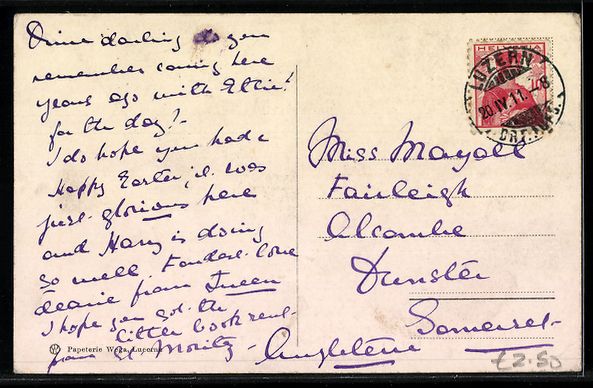 Dine darling do you
remember coming here
years ago with Effie!
for the day?
I do hope you had a
Happy Easter, it was
just glorious here
and Harry is doing
so well. Fondest love
dearie from Queen
I hope you got the
little book sent
from St Moritz -
Papeterie Wega, Lucerne
HELVETIA
LUZERN
20.IV.11.
Miss Mayall
Fairleigh
Alcombe
Dunster
Somerset
Angleterre
£2.50